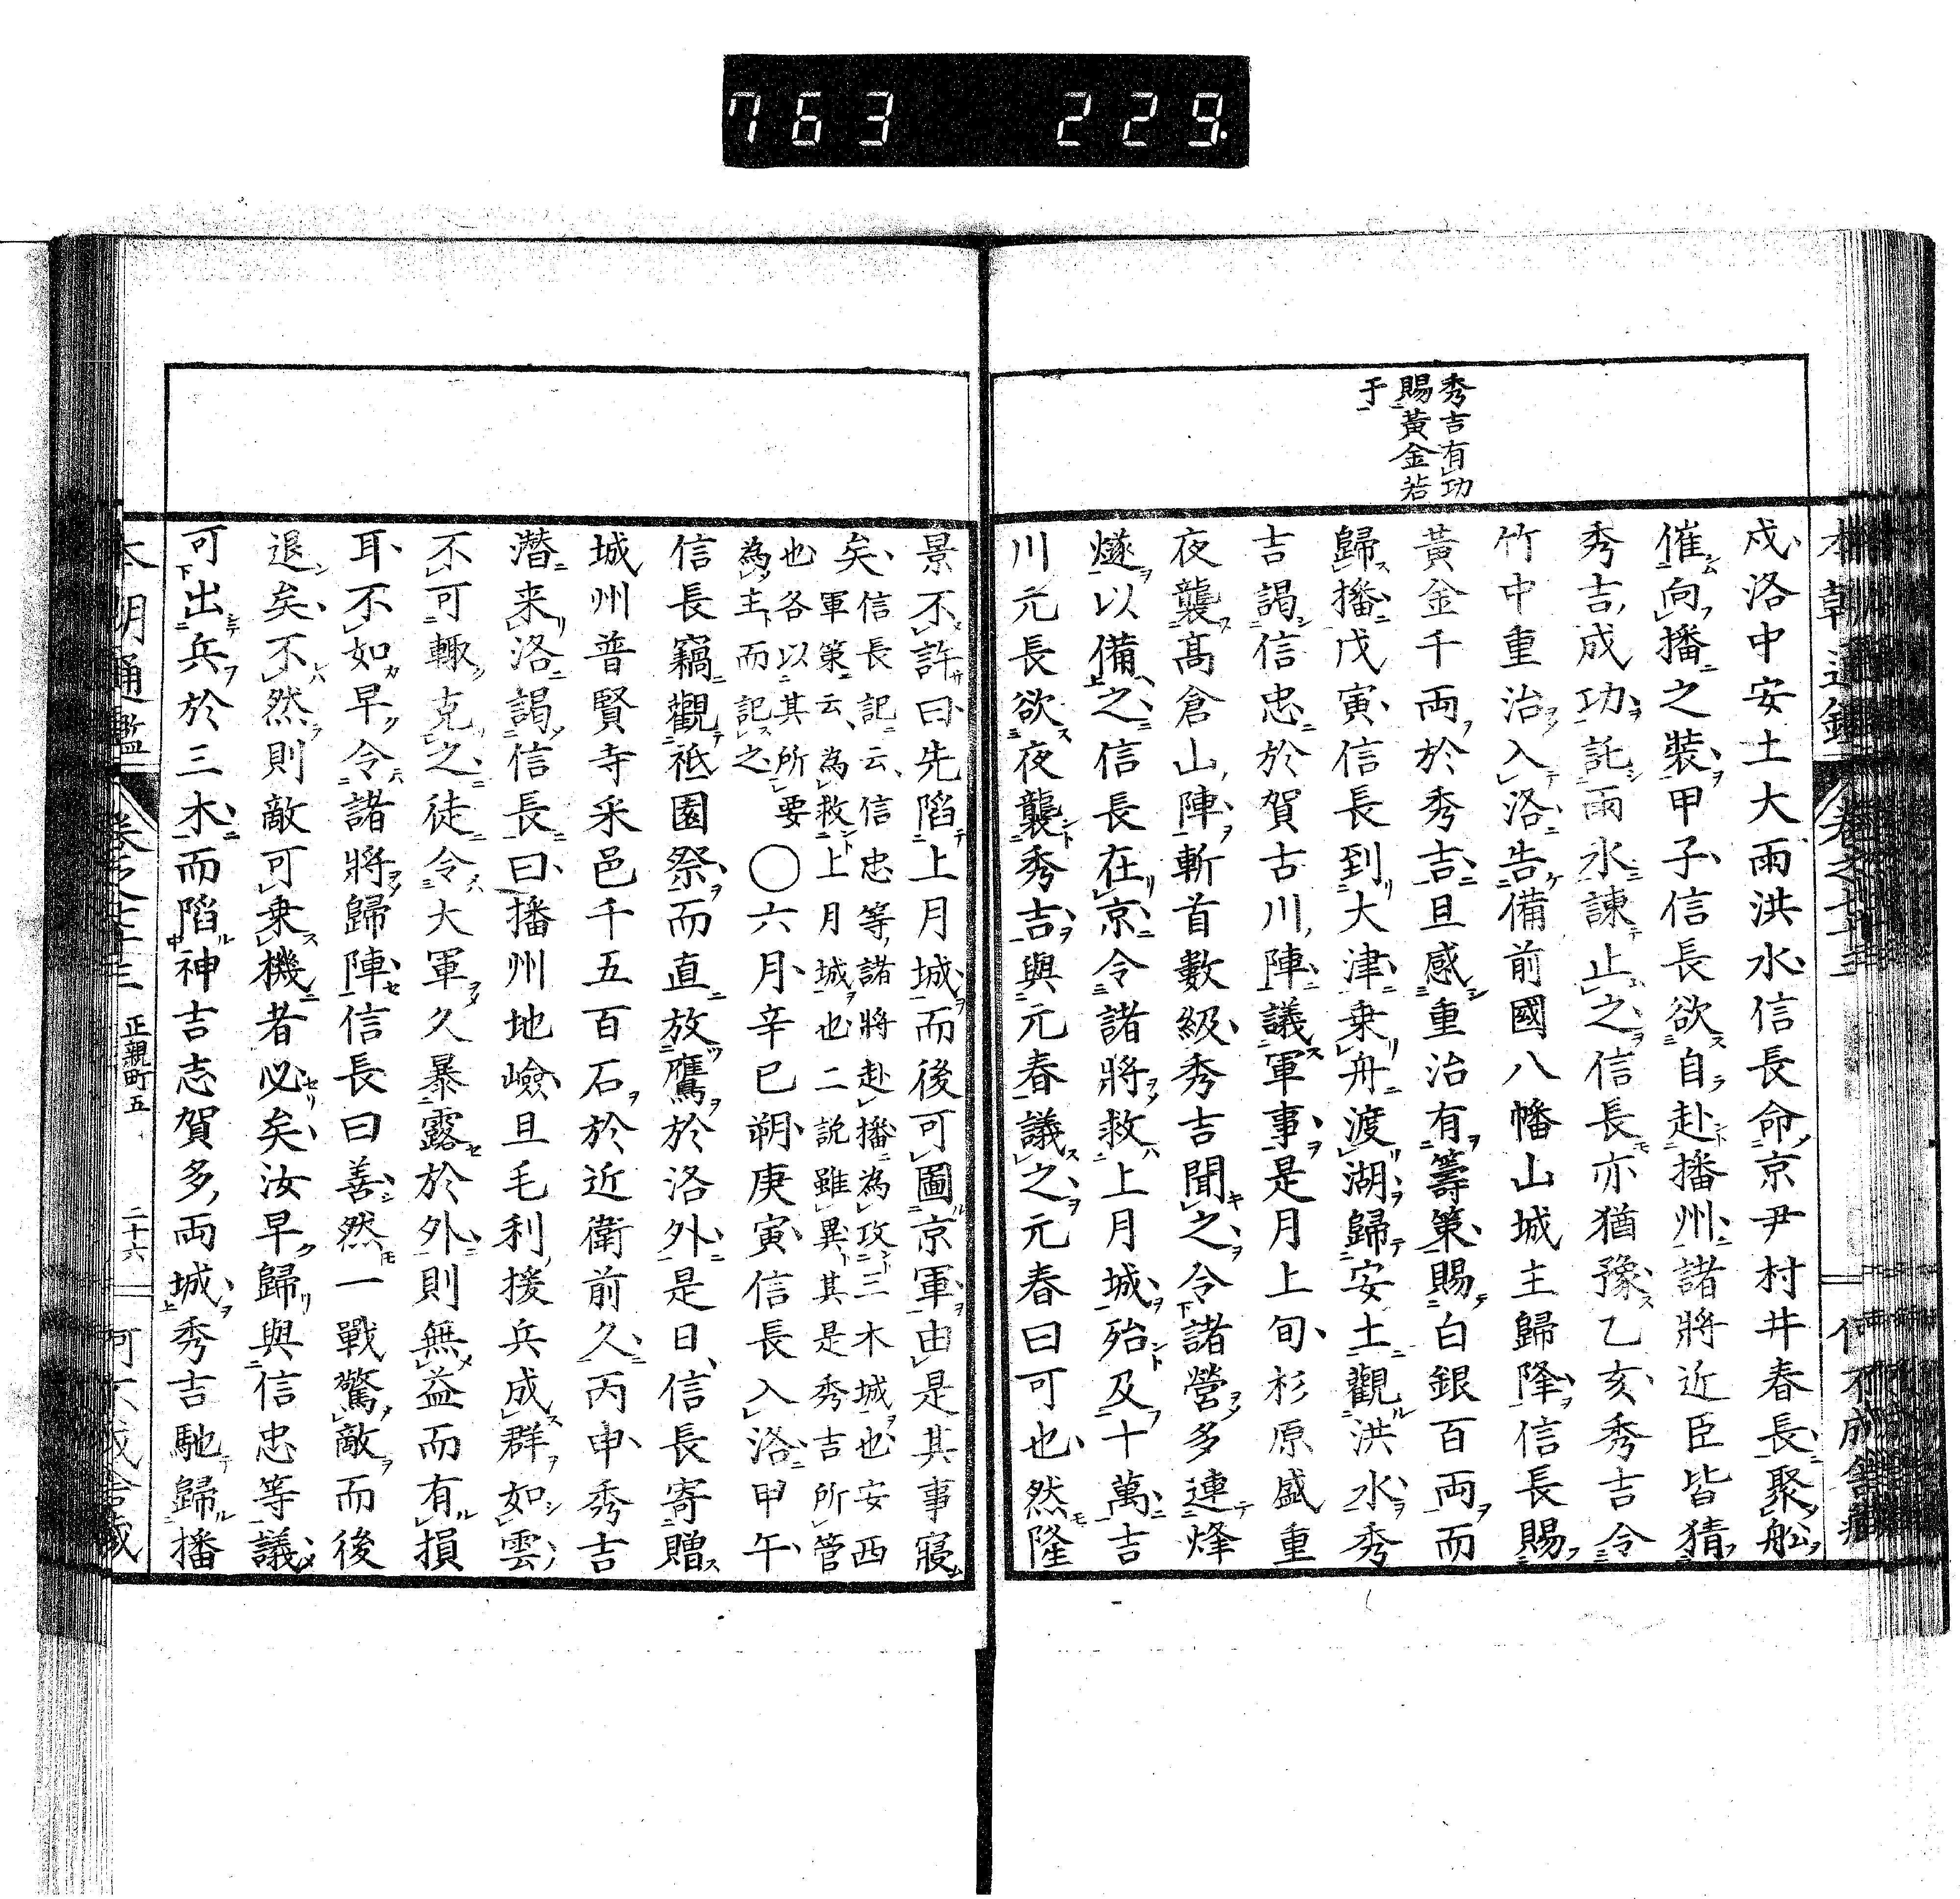 763 229.
秀吉有功
賜黃金若
于
戍洛中安土大雨洪水信長命京尹村井春長聚舩
催向播之裝甲子信長欲自赴播州諸將近臣皆猜
秀吉成功託雨水諫止之信長亦猶豫乙亥秀吉令
竹中重治入洛告備前國八幡山城主歸降信長賜
黃金千両於秀吉且感重治有籌策賜白銀百両而
歸播戊寅信長到大津乗舟渡湖歸安土觀洪水秀
吉謁信忠於賀古川陣議軍事是月上旬杉原盛重
夜襲髙倉山陣斬首數級秀吉聞之令諸營多連烽
燧以備之信長在京令諸將救上月城殆及十萬吉
川元長欲夜襲秀吉與元春議之元春曰可也然隆
景不許曰先陷上月城而後可圖京軍由是其事寢
矣信長記云信忠等諸將赴播為攻三木城也安西
軍策云為救上月城也二說雖異其是秀吉所管
也各以其所要
為主而記之
○六月辛巳朔庚寅信長入洛甲午
信長竊觀祗園祭而直放鷹於洛外是日信長寄贈
城州普賢寺采邑千五百石於近衛前久丙申秀吉
潜来洛謁信長曰播州地嶮且毛利援兵成群如雲
不可輙克之徒令大軍久暴露於外則無益而有損
耳不如早令諸將歸陣信長曰善然一戰驚敵而後
退矣不然則敵可乗機者必矣汝早歸與信忠等議
可出兵於三木而陷神吉志賀多両城秀吉馳歸播
正親町五
二十六